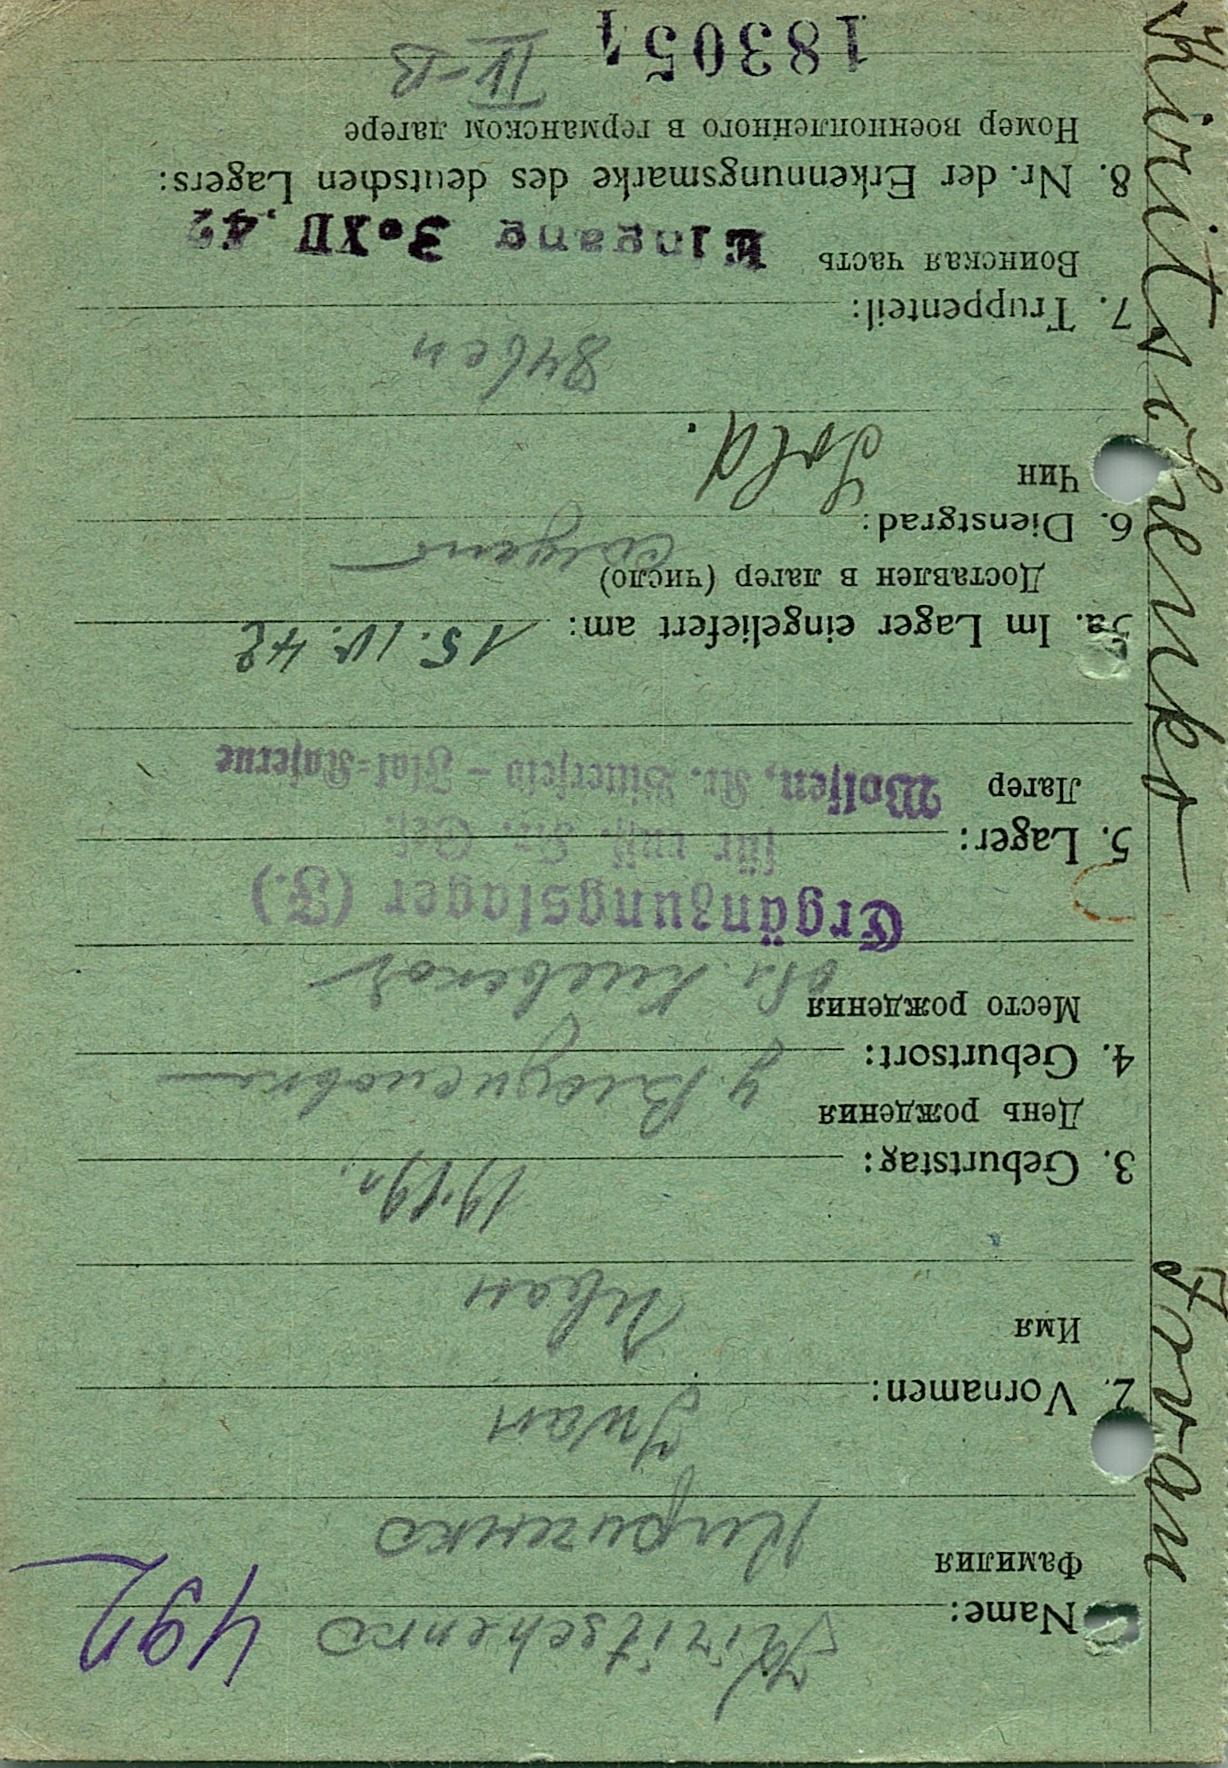 Kiritschenko Iwan
492
Name: Kiritschenko
Фамилия Кириченко
2. Vornamen: Iwan
Имя Иван
3. Geburtstag: 1919г.
День рождения
4. Geburtsort:
Место рождения обл. Киевской
Ergänzungslager (F.)
5. Lager: für russ. Kr. Gef.
Лагер Wolfen, Kr. Bitterfeld - Flak-Kaserne
5a. Im Lager eingeliefert am: 15. IV. 42
Доставлен в лагер (число)
6. Dienstgrad: Sold.
Чин
7. Truppenteil:
Воинская часть Eingang 3. XII. 42
8. Nr. der Erkennungsmarke des deutschen Lagers:
Номер военнопленного в германском лагере
183054 IV-B